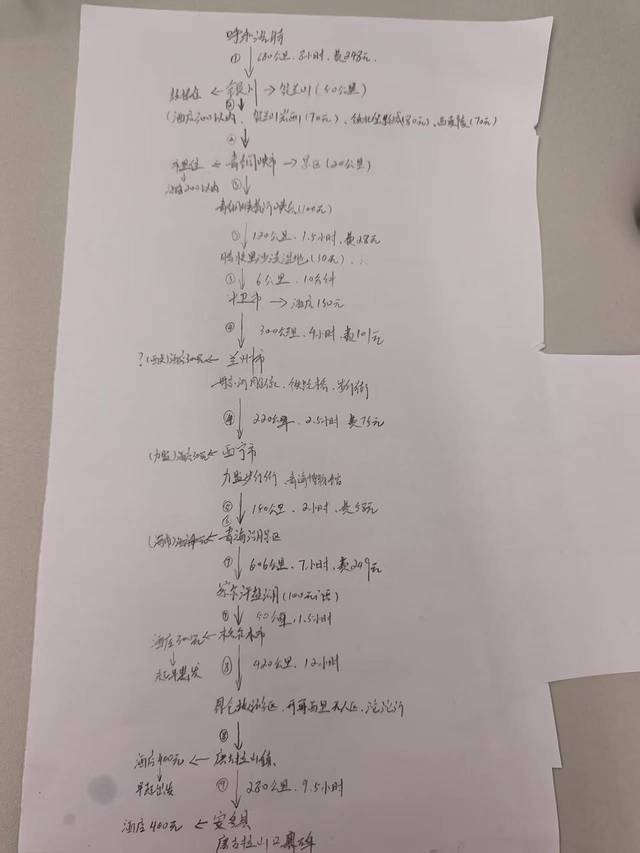 呼和浩特
① ↓ 680公里、8小时、费248元
← 银川 → 贺兰山(40公里)
② ↓
(酒店300以内、贺兰山岩画(70元)、镇北堡影城(80元)、西夏陵(70元)
② ↓
← 青铜峡市 → 景区(20公里)
酒店200以内 ③ ↓
青铜峡黄河大峡谷(100元)
③ ↓ 120公里、1.5小时、费28元
腾格里沙漠湿地(10元)
③ ↓ 6公里、10分钟
中卫市 → 酒店150元
④ ↓ 300公里、4小时、费101元
? ← 兰州市
铁桥、步行街
④ ↓ 220公里、2.5小时 费75元
(力盟)酒店 ← 西宁市
力盟步行街、青海博物馆
⑤ ↓ 150公里、2小时、费58元
⑥
← 青海湖景区
⑦ ↓ 606公里、7小时、费249元
察尔汗盐湖(100元/张)
⑦ ↓ 50公里、1.5小时
酒店300元 ← 格尔木市
↓
起早出发 ⑧ ↓ 420公里、12小时
昆仑、可可西里无人区、沱沱河
⑧ ↓
酒店400元 ← 唐古拉山镇
↓
早起出发 ⑨ ↓ 280公里、9.5小时
酒店400元 ← 安多县
唐古拉山口